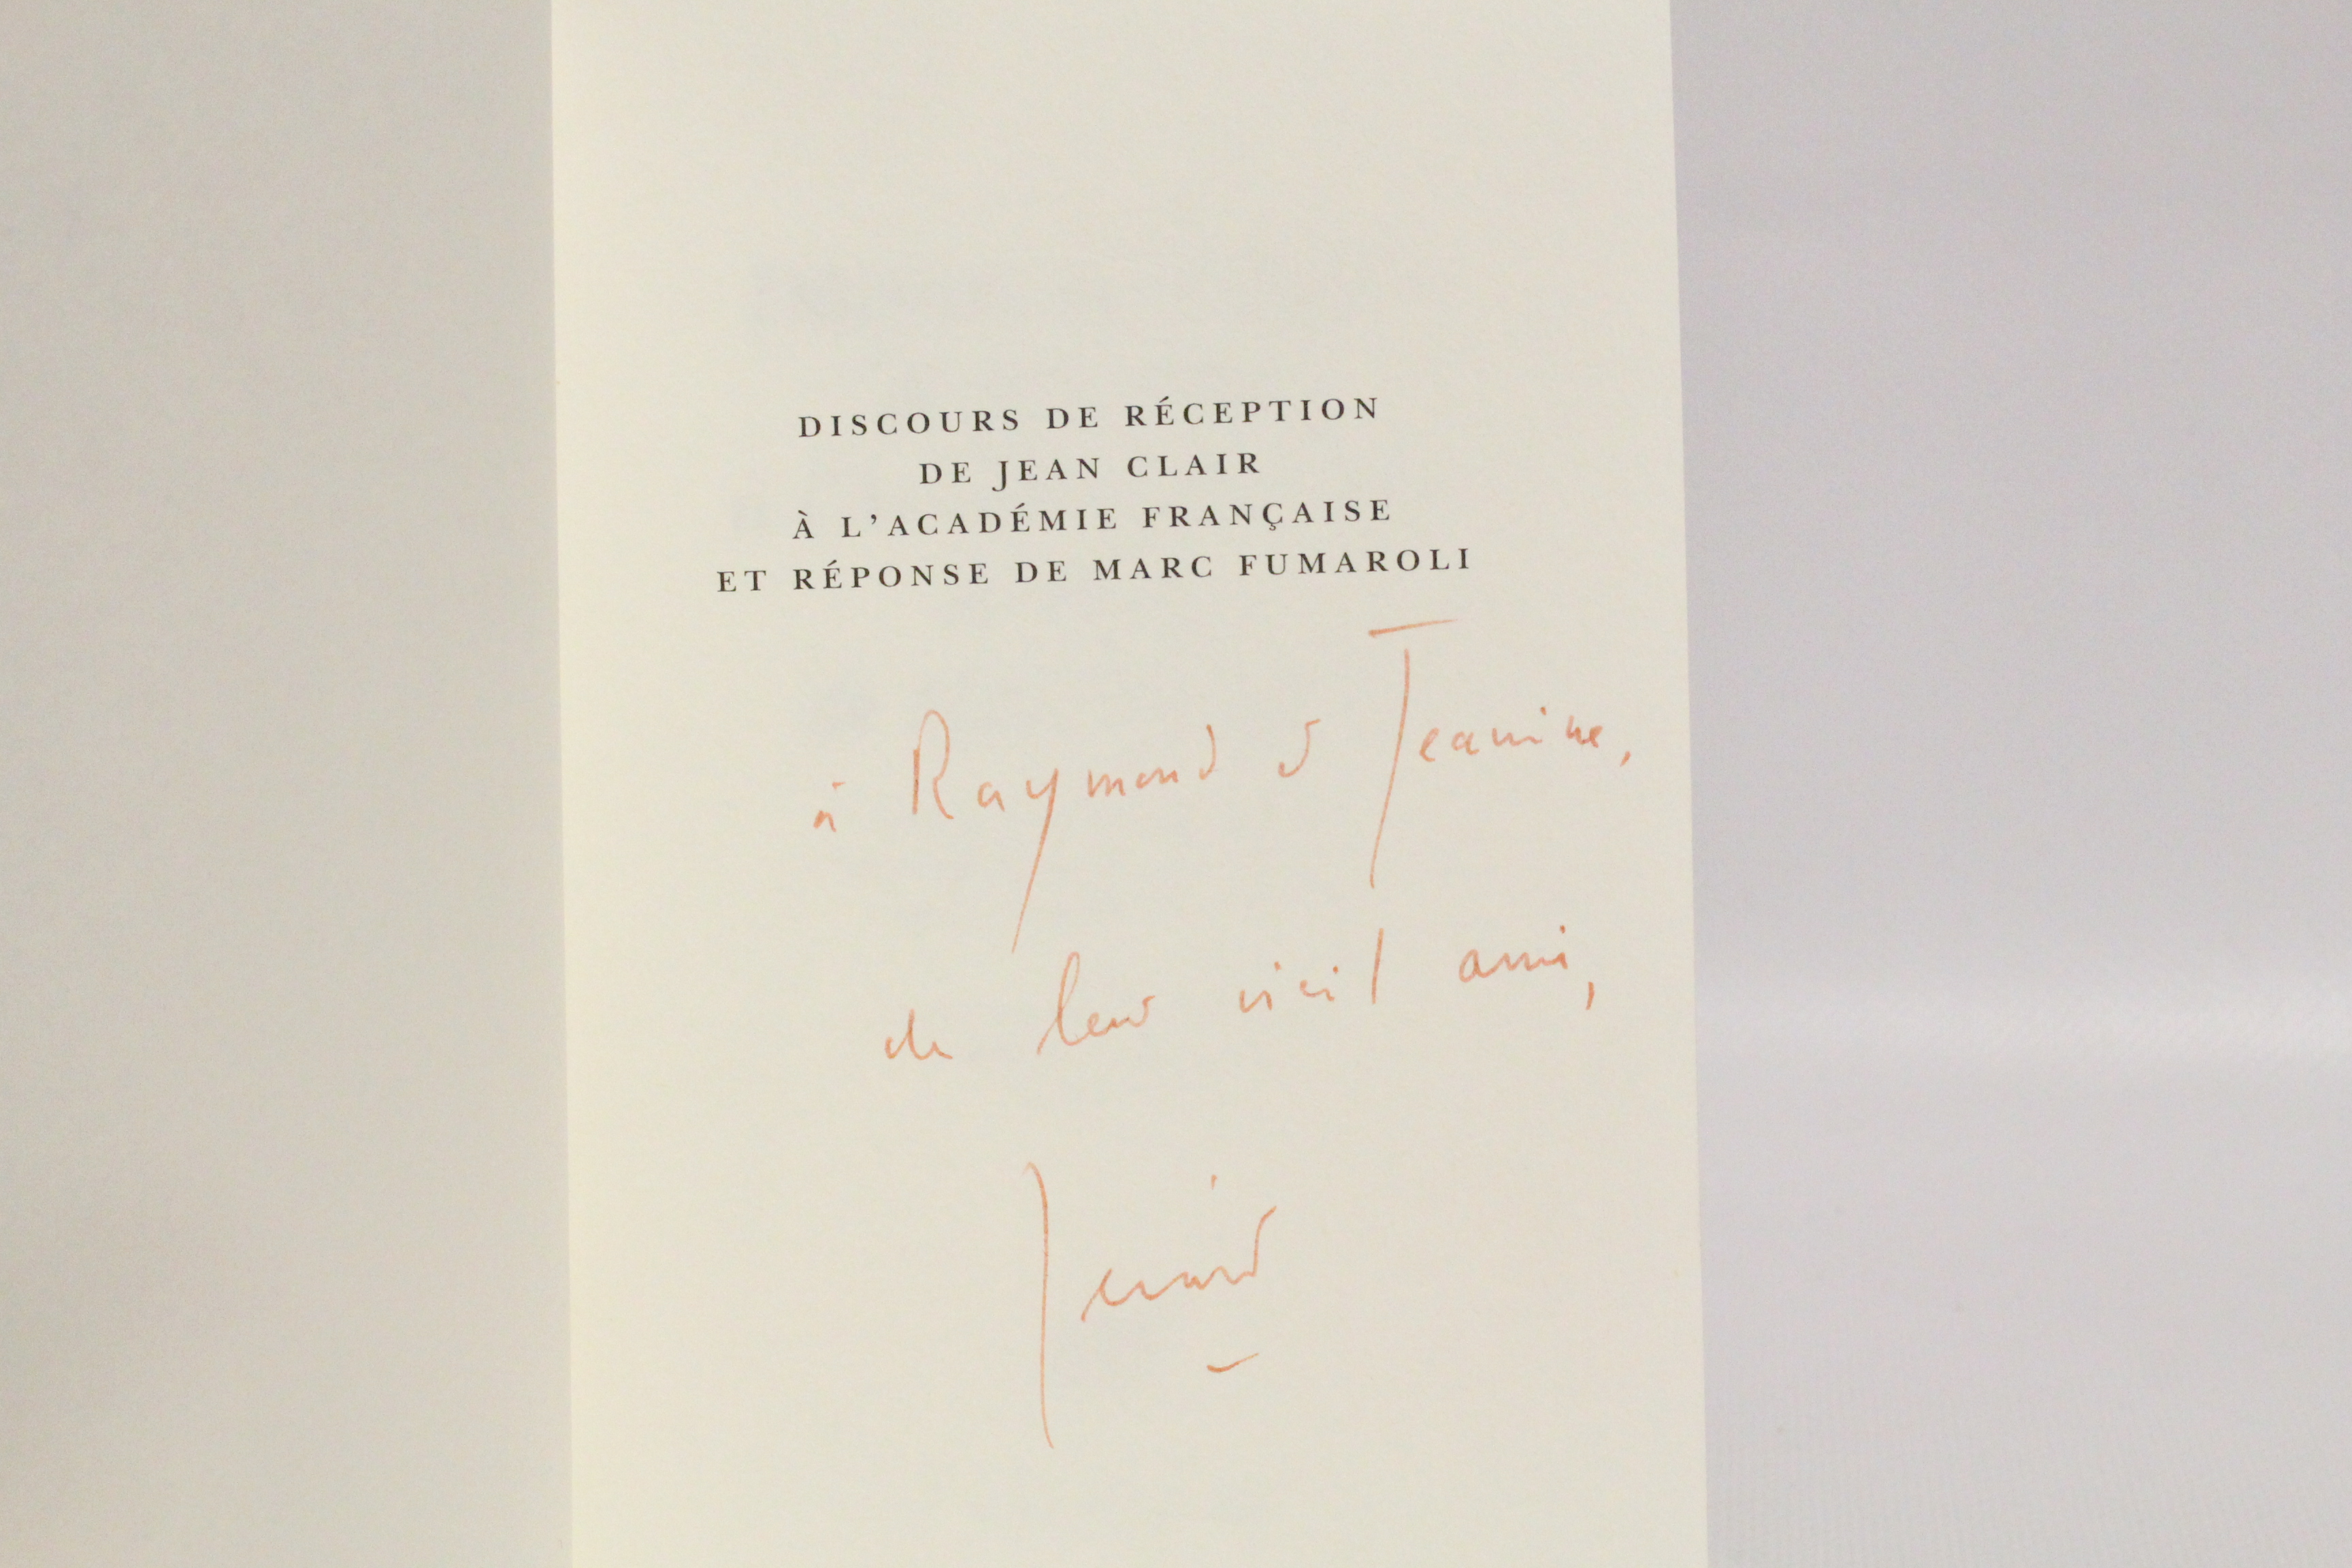 DISCOURS DE RÉCEPTION
DE JEAN CLAIR
À L'ACADÉMIE FRANÇAISE
ET RÉPONSE DE MARC FUMAROLI
à Raymond & Jeanine,
de leur vieil ami,